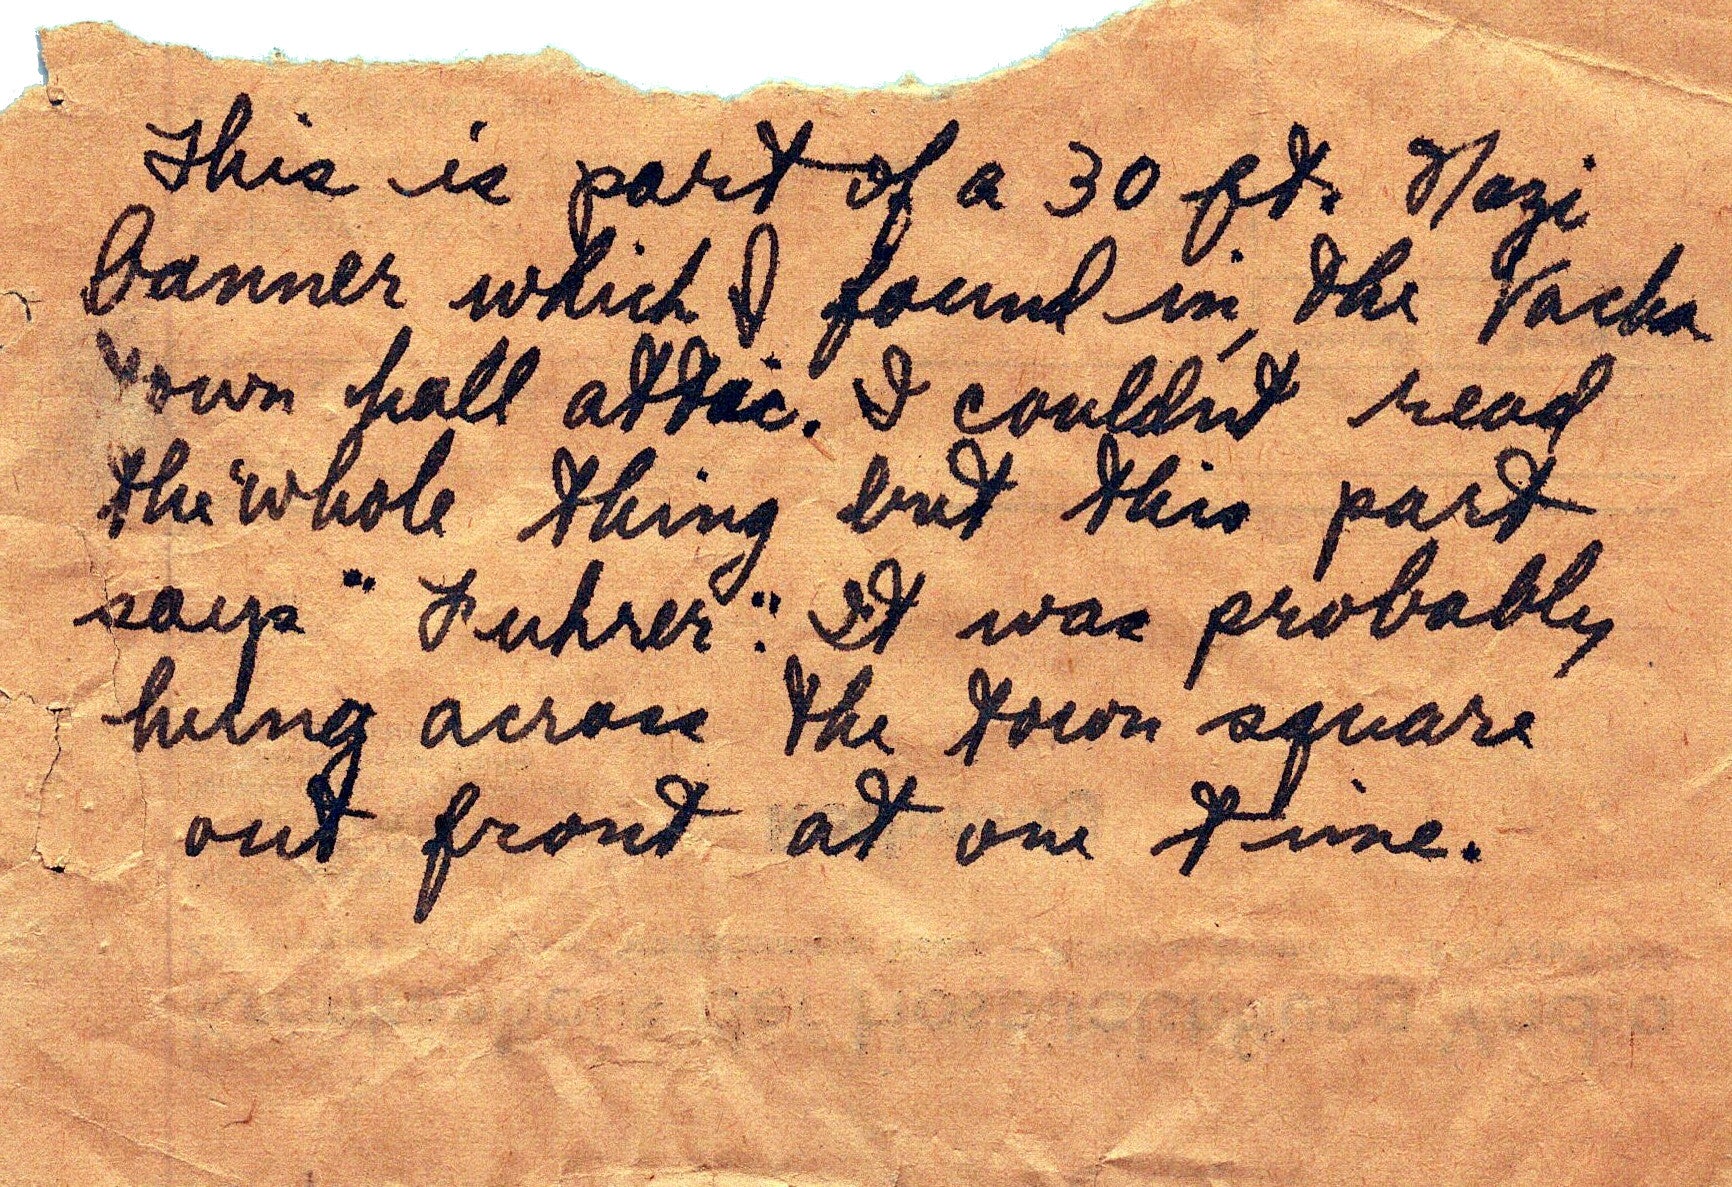 This is part of a 30 ft. Nazi
banner which I found in the Vacha
town hall attic. I couldn't read
the whole thing but this part
says "Fuhrer". It was probably
hung across the town square
out front at one time.